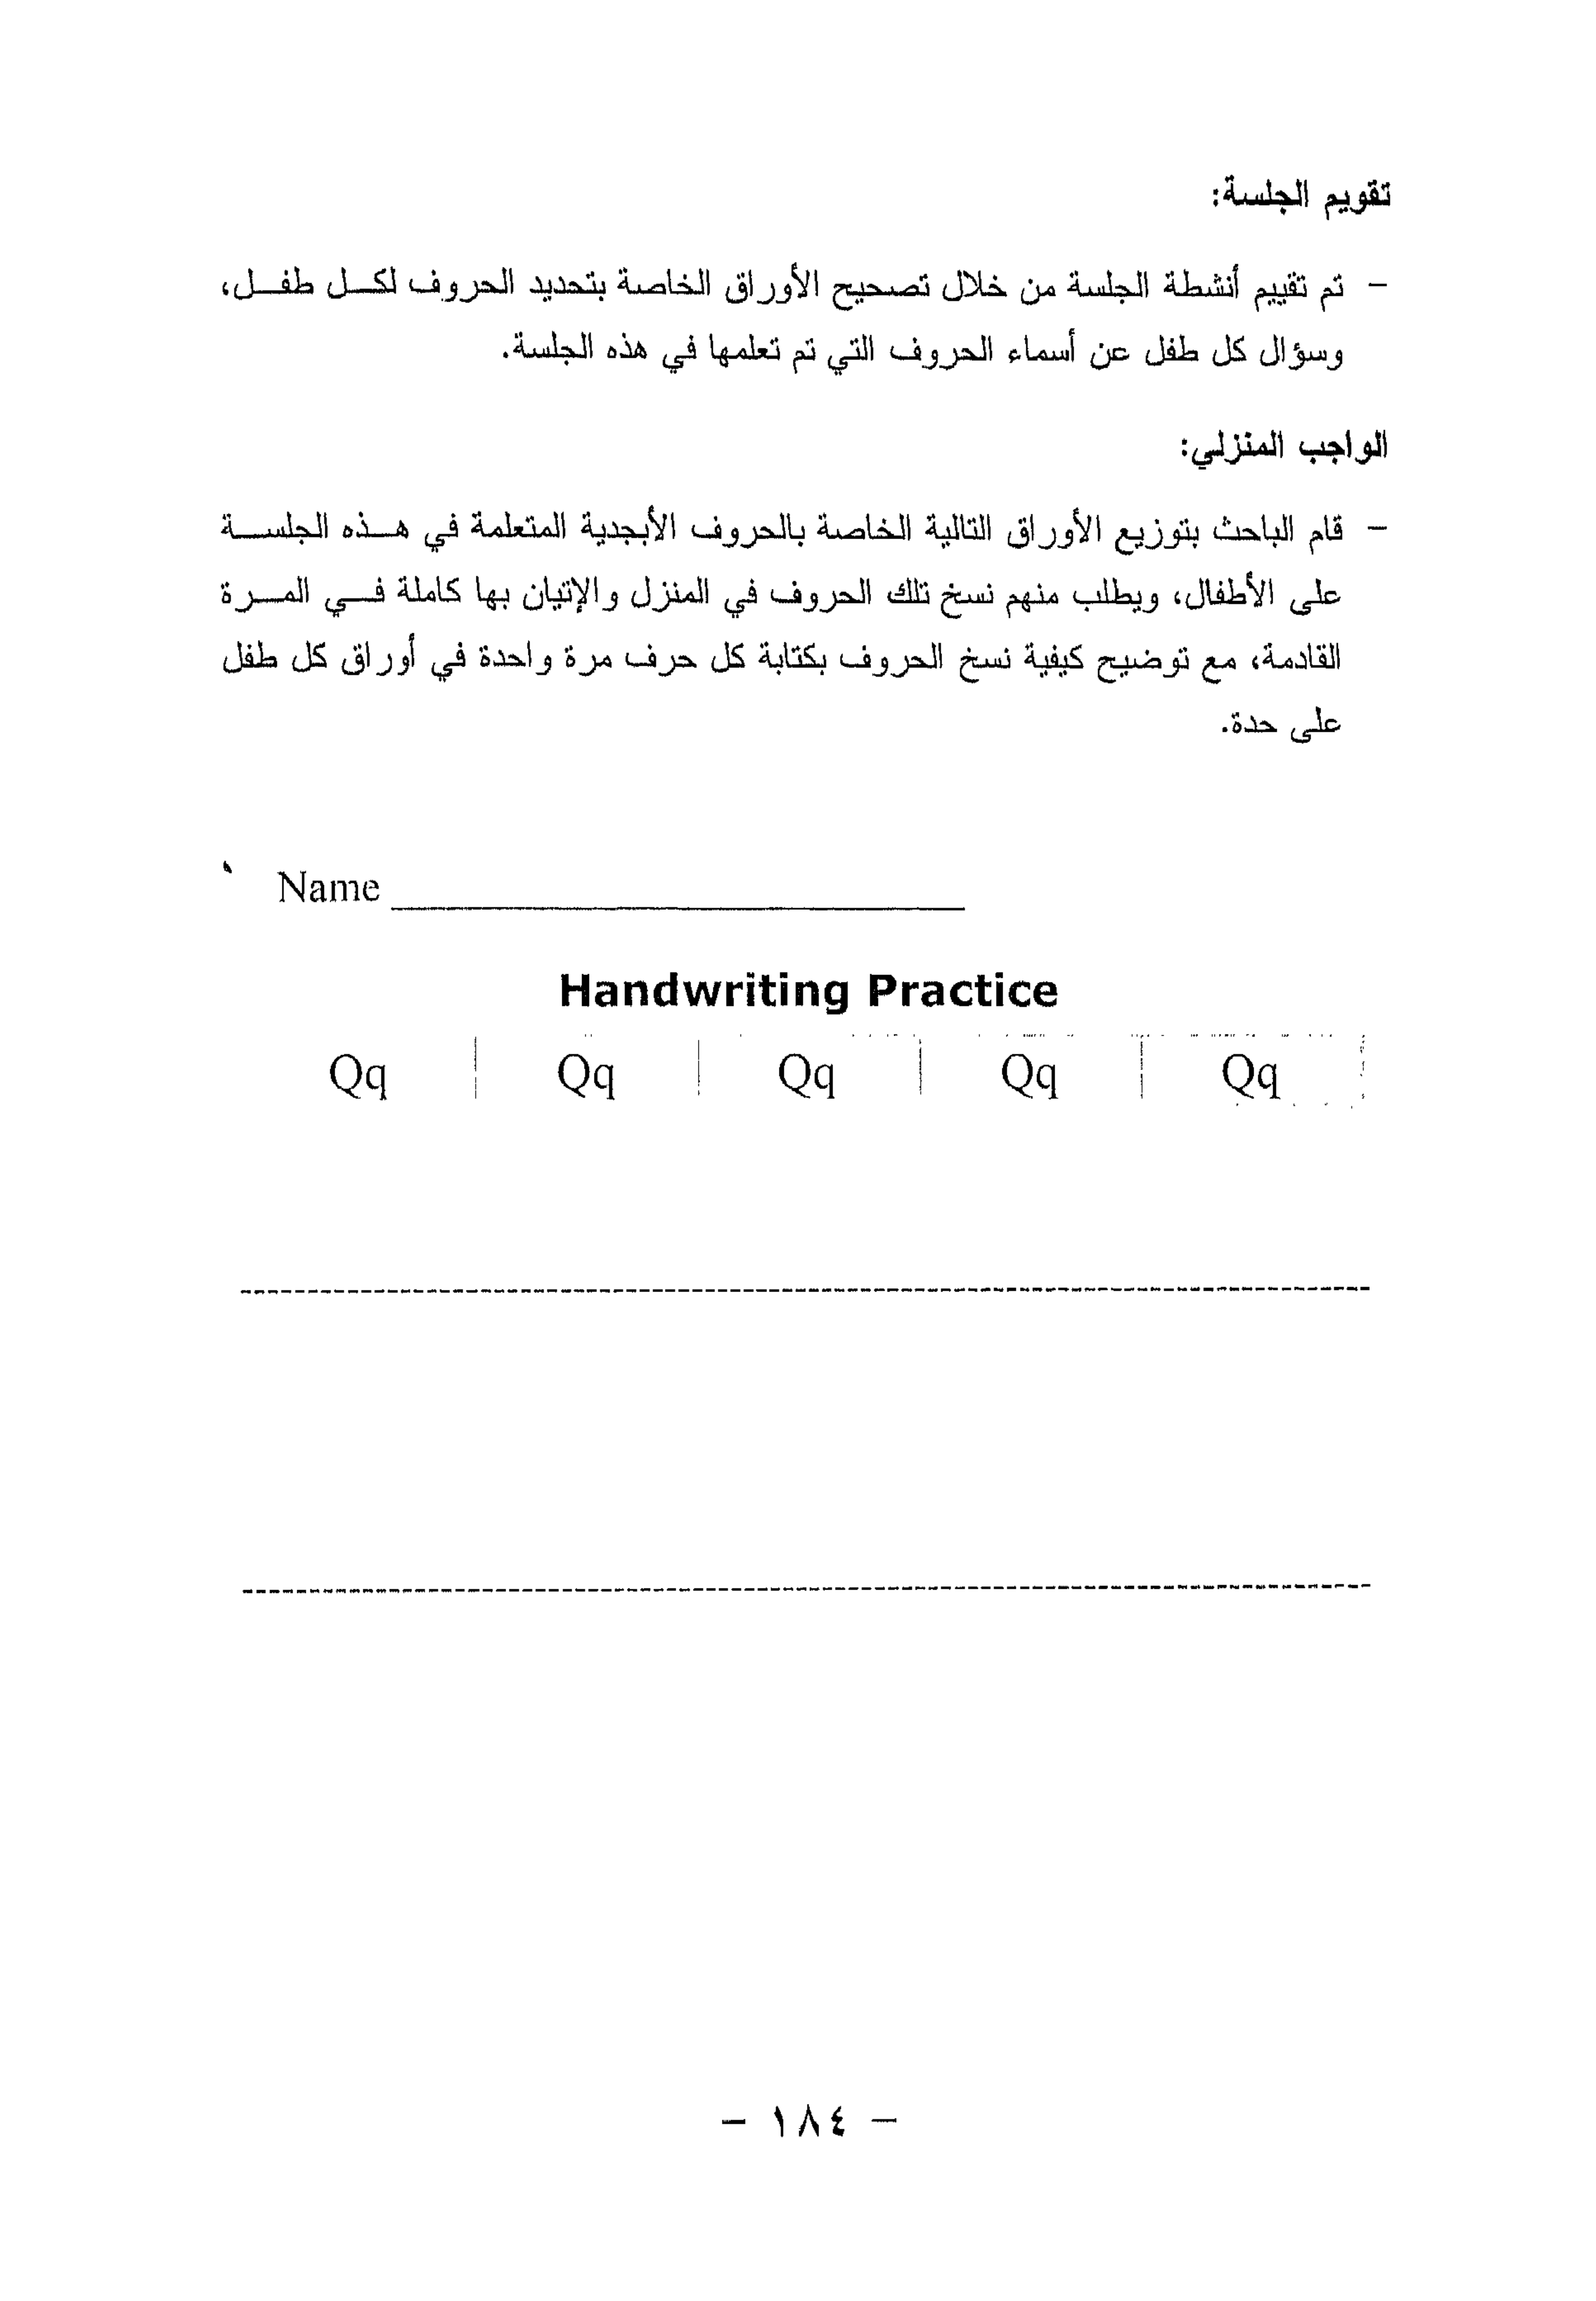 تقويم الجلسة:
- تم تقييم أنشطة الجلسة من خلال تصحيح الأوراق الخاصة بتحديد الحروف لكل طفل،
وسؤال كل طفل عن أسماء الحروف التي تم تعلمها في هذه الجلسة.
الواجب المنزلي:
- قام الباحث بتوزيع الأوراق التالية الخاصة بالحروف الأبجدية المتعلمة في هذه الجلسة
على الأطفال، ويطلب منهم نسخ تلك الحروف في المنزل والإتيان بها كاملة في المرة
القادمة، مع توضيح كيفية نسخ الحروف بكتابة كل حرف مرة واحدة في أوراق كل طفل
على حدة.
Name
Handwriting Practice
Qq Qq Qq Qq Qq
- ١٨٤ -